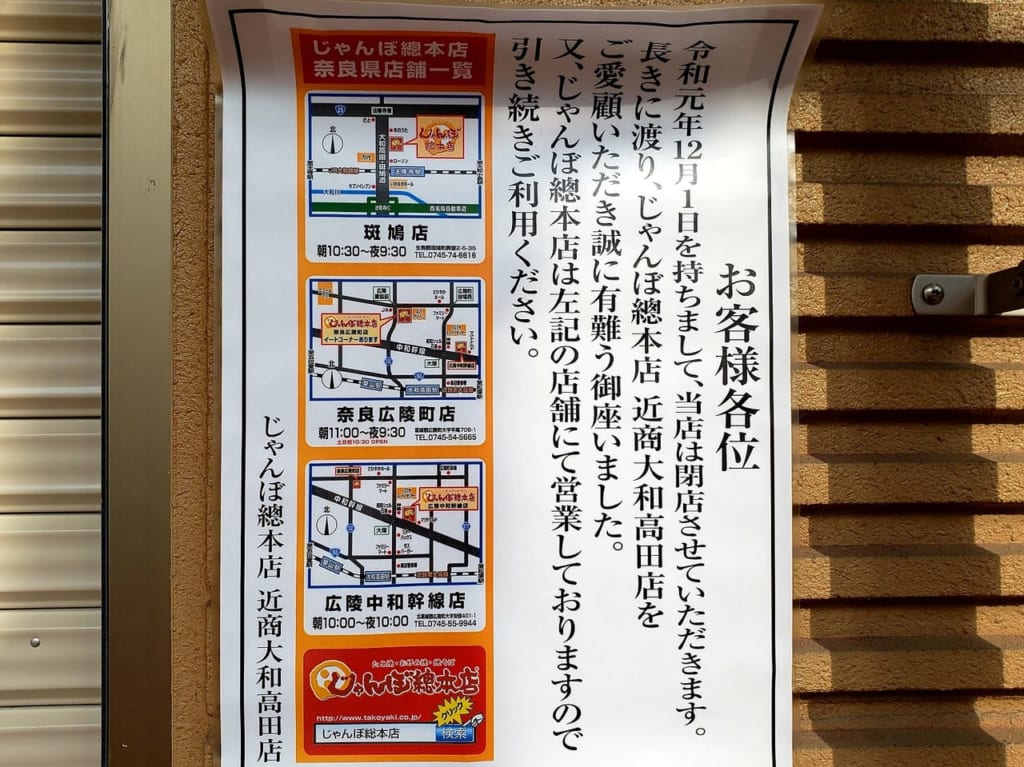 お客様各位
令和元年12月1日を持ちまして、当店は閉店させていただきます。
長きに渡り、じゃんぼ總本店 近商大和高田店を
ご愛顧いただき誠に有難う御座いました。
又、じゃんぼ總本店は左記の店舗にて営業しておりますので
引き続きご利用ください。
じゃんぼ總本店 近商大和高田店
じゃんぼ總本店
奈良県店舗一覧
北
大和高田・斑鳩道
じゃんぼ總本店
ローソン
法隆寺駅
セブンイレブン
大和川
西名阪自動車道
斑鳩店
朝10:30~夜9:30
TEL.0745-74-6616
じゃんぼ總本店
奈良広陵町店
イートコーナーあります
中和幹線
大和高田駅
北
奈良広陵町店
朝11:00~夜9:30
土日祝10:30 OPEN
TEL.0745-54-5665
中和幹線
じゃんぼ總本店
広陵中和幹線店
北
大塚
ファミリーマート
モスバーガー
大和高田駅
広陵中和幹線店
朝10:00~夜10:00
TEL.0745-55-9944
たこ焼・お好み焼・焼そば
じゃんぼ總本店
http://www.takoyaki.co.jp/
クリック
じゃんぼ総本店
検索